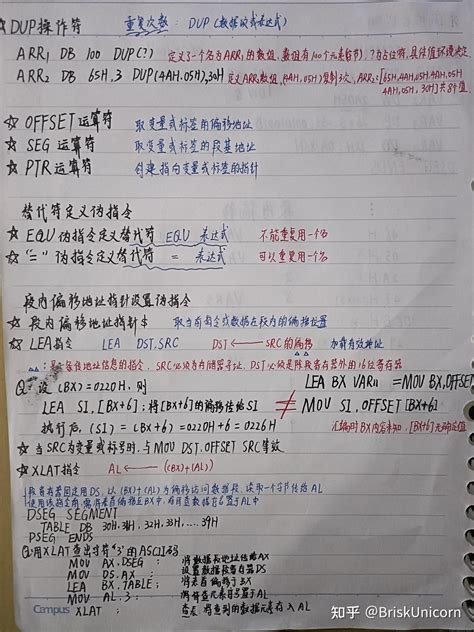 ☆DUP操作符 重复次数 DUP(数据议或表达式)
ARR1 DB 100 DUP(?) 定义了一个名为ARR1的数组,数组有100个元素(字节),?为占位符,具体值环境决定
ARR2 DB 65H, 3 DUP(4AH,05H),30H 定义ARR2数组,(4AH,05H)复制3次,ARR2:[65H,4AH,05H,4AH,05H
4AH,05H,30H]共8个值
☆ OFFSET运算符 取变量或标签的偏移地址
☆ SEG 运算符 取变量或标签的段基地址
☆ PTR运算符 创建指向变量或标签的指针
替代符定义伪指令
☆ EQU伪指令定义替代符 EQU 表达式 不能重复用一个名
☆ "="伪指令定义替代符 = 表达式 可以重复用一个名
段内偏移地址指针设置伪指令
☆ 段内偏移地址指针$ 取当前指令或数据在段内的偏移位置
☆ LEA指令 LEA DST,SRC DST ← SRC的偏移 加载有效地址
传地址信息的指令,SRC必须为存储器寻址,DST必须是除段寄存器外的16位寄存器
Q:设(BX)=0220H,则 LEA BX VAR =MOV BX,OFFSET
LEA SI,[BX+6];将[BX+6]的偏移传给SI ≠ MOV SI,OFFSET[BX+6]
执行后,(SI)=(BX)+6=0220H+6=0226H 汇编时BX内容未知,[BX+6]无确定值
☆ 当SRC为变量或标号时,与MOV DST,OFFSET SRC等效
☆ XLAT指令 AL←((BX)+(AL))
段寄存器固定用DS,以(BX)+(AL)为偏移访问数据段,读取一个字节传给AL
使用该指令前,需将表首偏移置BX中,将目标数据存储置于AL中
DSEG SEGMENT
TABLE DB 30H,31H,32H,33H,....39H
DSEG ENDS
Q:用XLAT查出字符"3"的ASCII码
MOV AX,DSEG ; 将数据段地址传给AX
MOV DS,AX ; 设置数据段寄存器DS
LEA BX,TABLE ; 将表首偏移于BX
MOV AL,3 ; 将位置元素号置于AL
XLAT ; 查表,将查到的数据元素存入AL
Campus
知乎 @BriskUnicorn